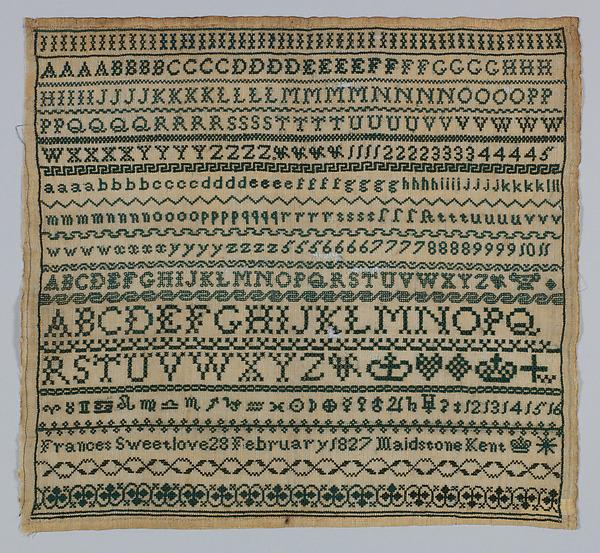 AAAABBBBCCCCDDDDEEEEFFFFGGGGHHH
HIIIIJJJJKKKKLLLLMMMMNNNNOOOOPP
PPQQQQRRRRSSSSTTTTUUUUVVVVWWW
WXXXXYYYYZZZZ&&&&111122223333444445
aaaabbbbccccddddeeeeffffgggghhhhiiiijjjjkkkklll
mmmmnnnnooooppppqqqqrrrrssssſſſſttttuuuuvvv
wwwwxxxxyyyyzzzz5556666777788889999101
ABCDEFGHIJKLMNOPQRSTUVWXYZ&
ABCDEFGHIJKLMNOPQ
RSTUVWXYZ&
♈♉♊♋♌♍♎♏♐♑♒♓☉☽⊕☿♀♂♃♄♅ 1213141516
Frances Sweetlove 28 February 1827 Maidstone Kent